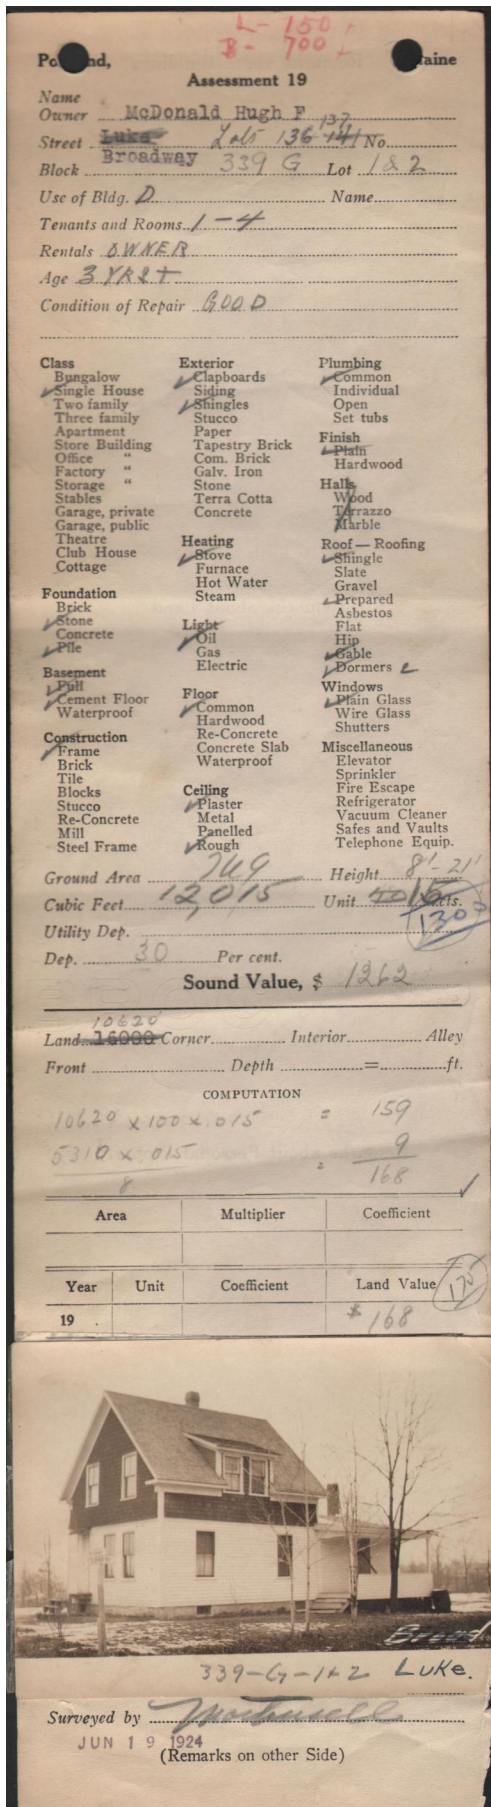 L- 150
B- 700
Portland, Maine
Assessment 19
Name
Owner McDonald Hugh F
Street Luke Lots 136 137 141 No.
Broadway
Block 339 G Lot 1 & 2
Use of Bldg. D Name
Tenants and Rooms 1-4
Rentals OWNER
Age 3 YRS+
Condition of Repair GOOD
Class
Bungalow
Single House
Two family
Three family
Apartment
Store Building
Office "
Factory "
Storage "
Stables
Garage, private
Garage, public
Theatre
Club House
Cottage
Foundation
Brick
Stone
Concrete
Pile
Basement
Full
Cement Floor
Waterproof
Construction
Frame
Brick
Tile
Blocks
Stucco
Re-Concrete
Mill
Steel Frame
Exterior
Clapboards
Siding
Shingles
Stucco
Paper
Tapestry Brick
Com. Brick
Galv. Iron
Stone
Terra Cotta
Concrete
Heating
Stove
Furnace
Hot Water
Steam
Light
Oil
Gas
Electric
Floor
Common
Hardwood
Re-Concrete
Concrete Slab
Waterproof
Ceiling
Plaster
Metal
Panelled
Rough
Plumbing
Common
Individual
Open
Set tubs
Finish
Plain
Hardwood
Halls
Wood
Terrazzo
Marble
Roof—Roofing
Shingle
Slate
Gravel
Prepared
Asbestos
Flat
Hip
Gable
Dormers 2
Windows
Plain Glass
Wire Glass
Shutters
Miscellaneous
Elevator
Sprinkler
Fire Escape
Refrigerator
Vacuum Cleaner
Safes and Vaults
Telephone Equip.
Ground Area 749 Height 8'-21'
Cubic Feet 12,015 Unit 15 cts.
1300
Utility Dep.
Dep. 30 Per cent.
Sound Value, $ 1262
10620
Land 16000 Corner Interior Alley
Front Depth = ft.
COMPUTATION
10620 x 100 x .015 = 159
5310 x 015 = 9
8 168
Area Multiplier Coefficient
Year Unit Coefficient Land Value 175
19 . $ 168
Broad
339-G-1+2 LUKE.
Surveyed by
JUN 19 1924
(Remarks on other Side)